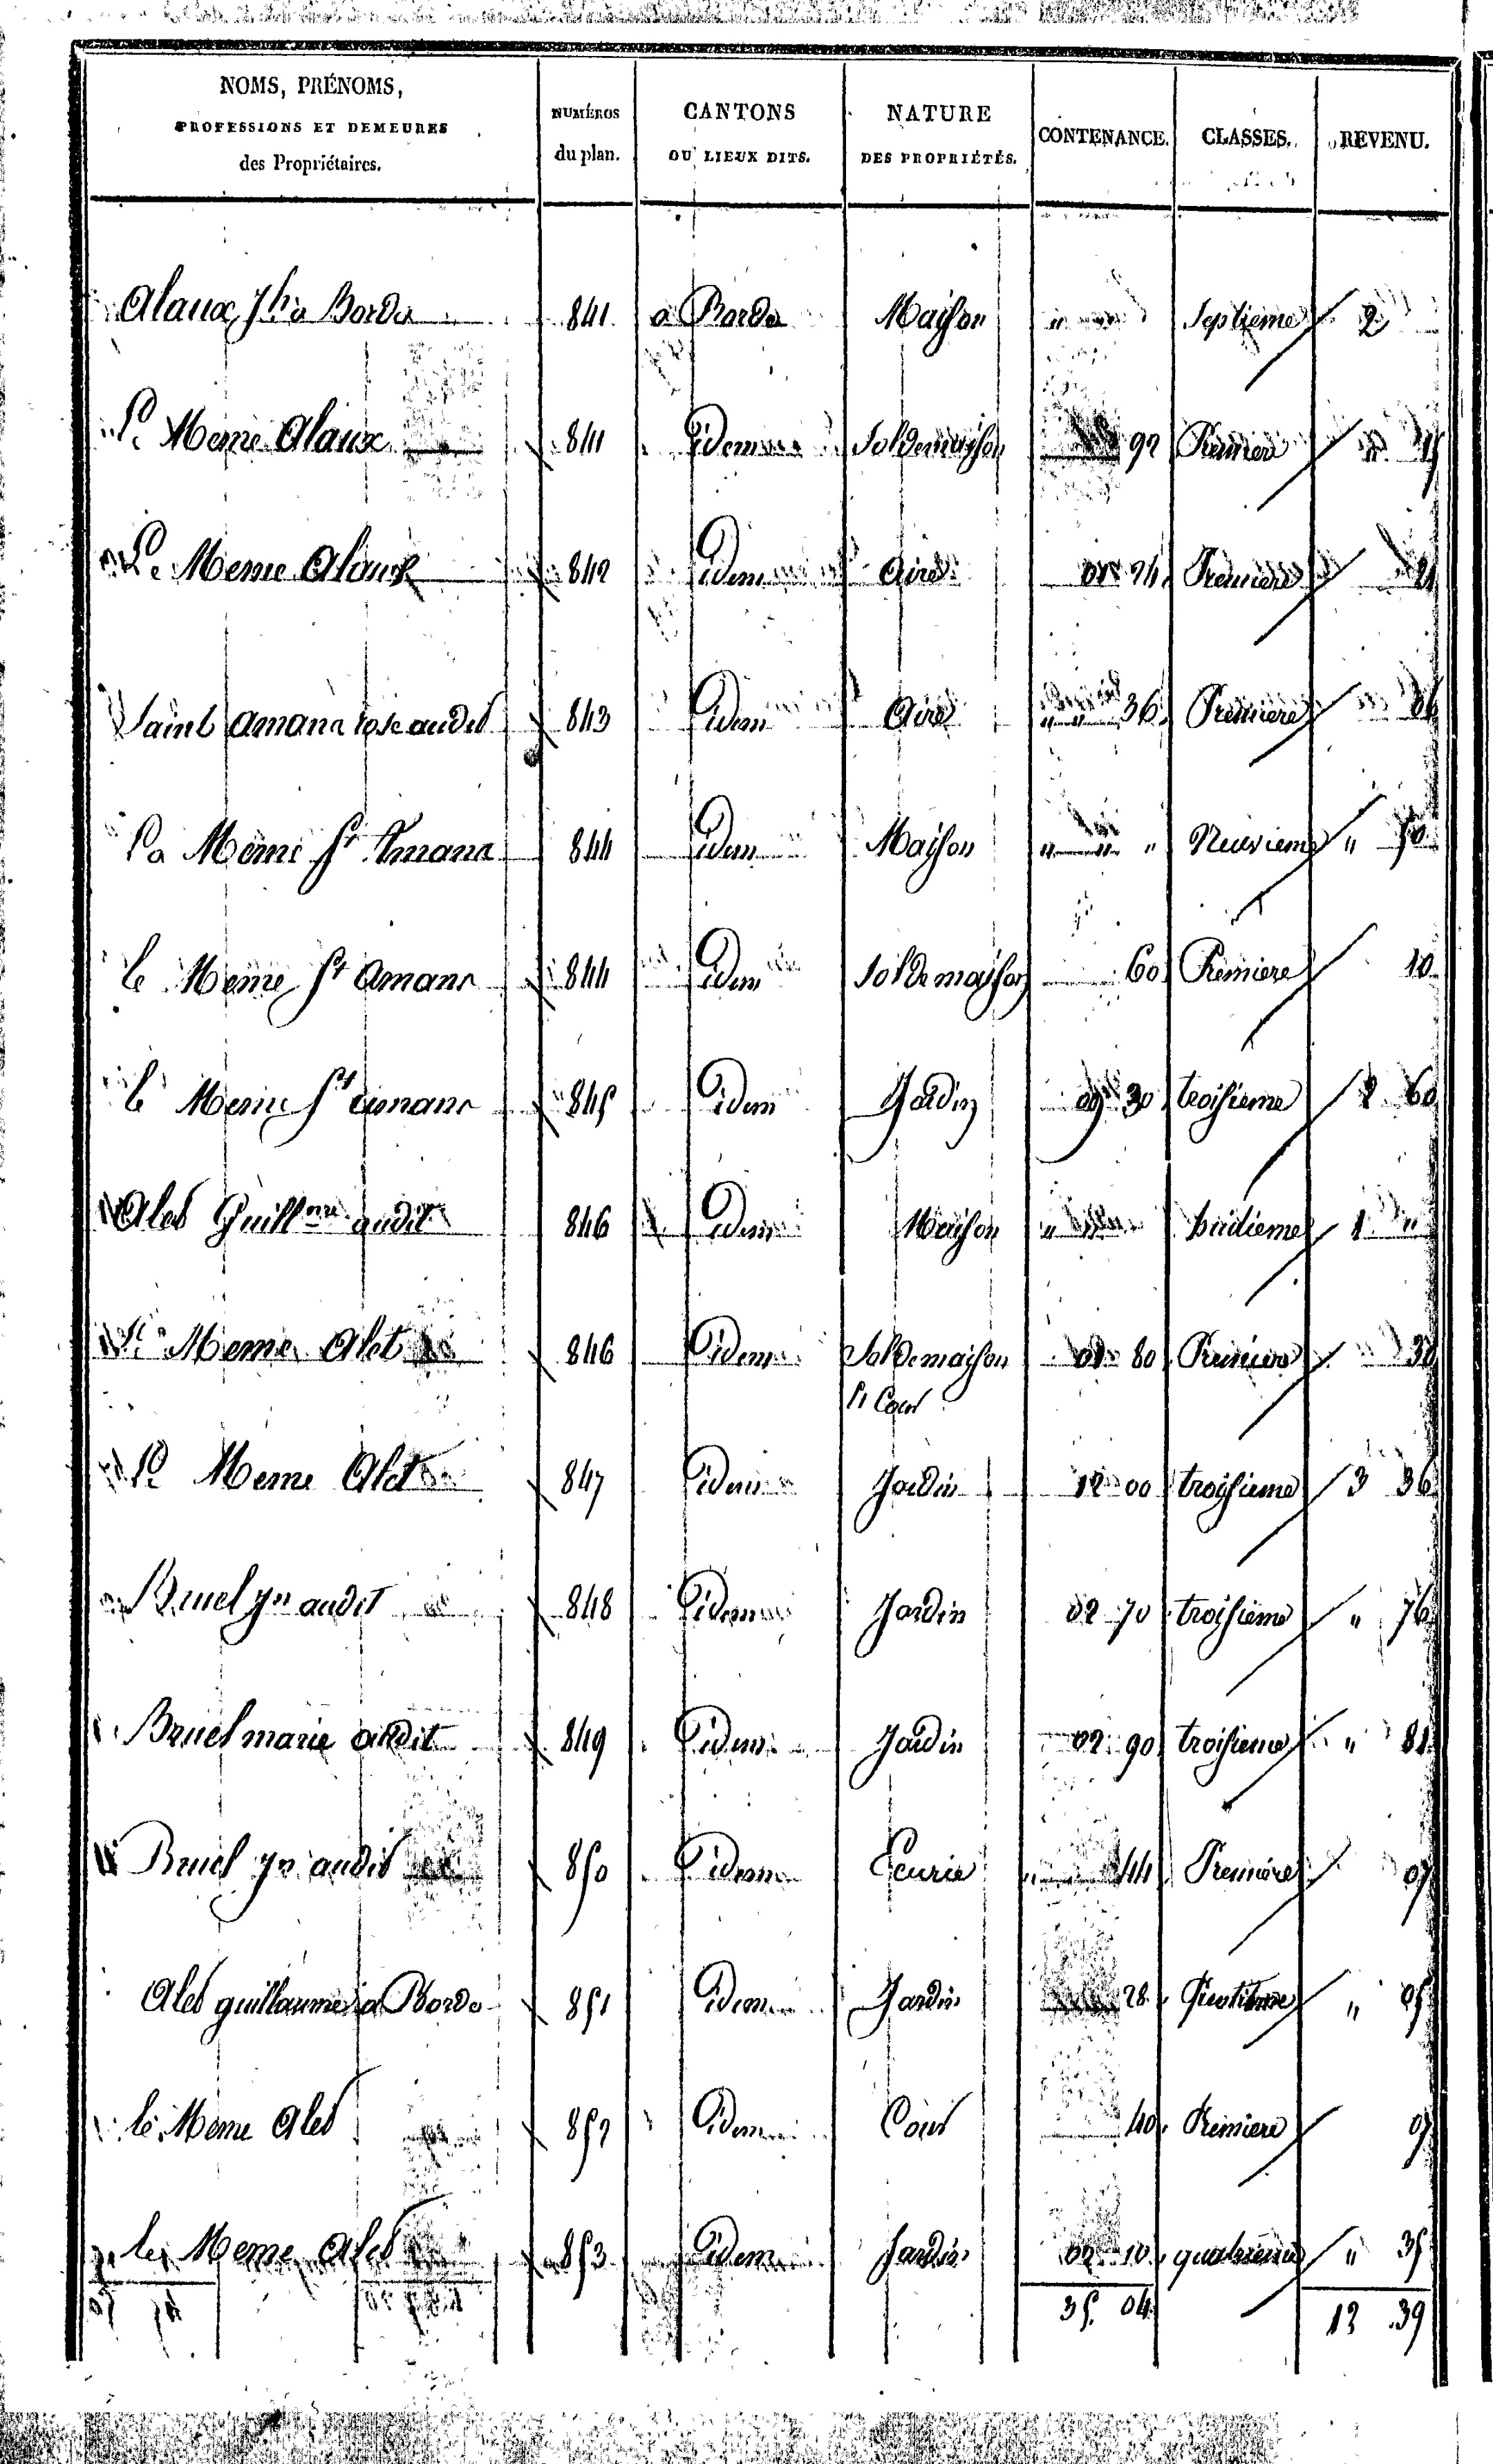 NOMS, PRÉNOMS, PROFESSIONS ET DEMEURES des Propriétaires. NUMÉROS du plan. CANTONS OU LIEUX DITS. NATURE DES PROPRIÉTÉS. CONTENANCE. CLASSES. REVENU.
Alaux Jh a Borde 841 a Borde Maison " Septieme 2
Le Meme Alaux 841 idem Sol de maison 92 Premiere
Le Meme Alaux 842 idem Aire 24 Premiere 21
Saint amans rose audit 843 idem Aire " " 36 Premiere 06
La Meme St Amans 844 idem Maison " " " Neuvieme " 50
le Meme St Amans 844 idem Sol de maison 60 Premiere 10
le Meme St amans 845 idem Jardin 09 30 troisieme 2 60
Alet Guillme audit 846 idem Maison " huitieme 1 "
Le Meme Alet 846 idem Sol de maison et Cour 01 80 Premiere 30
Le Meme Alet 847 idem Jardin 12 00 troisieme 3 36
Bruel audit 848 idem Jardin 02 70 troisieme " 76
Bruel marie audit 849 idem Jardin 02 90 troisieme " 81
Bruel audit 850 idem Ecurie 44 Premiere 07
Alet guillaume a Borde 851 idem Jardin 28 " 05
le Meme Alet 852 idem Cour 40 Premiere 07
le Meme Alet 853 idem Jardin 02 10 quatrieme " 35
35 04 13 39